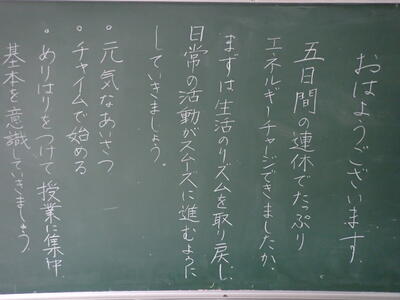 おはようございます
五日間の連休でたっぷり
エネルギーチャージできましたか。
まずは生活のリズムを取り戻し、
日常の活動がスムーズに進むように
していきましょう。
・元気なあいさつ
・チャイムで始める
・めりはりをつけて授業に集中
基本を意識していきましょう